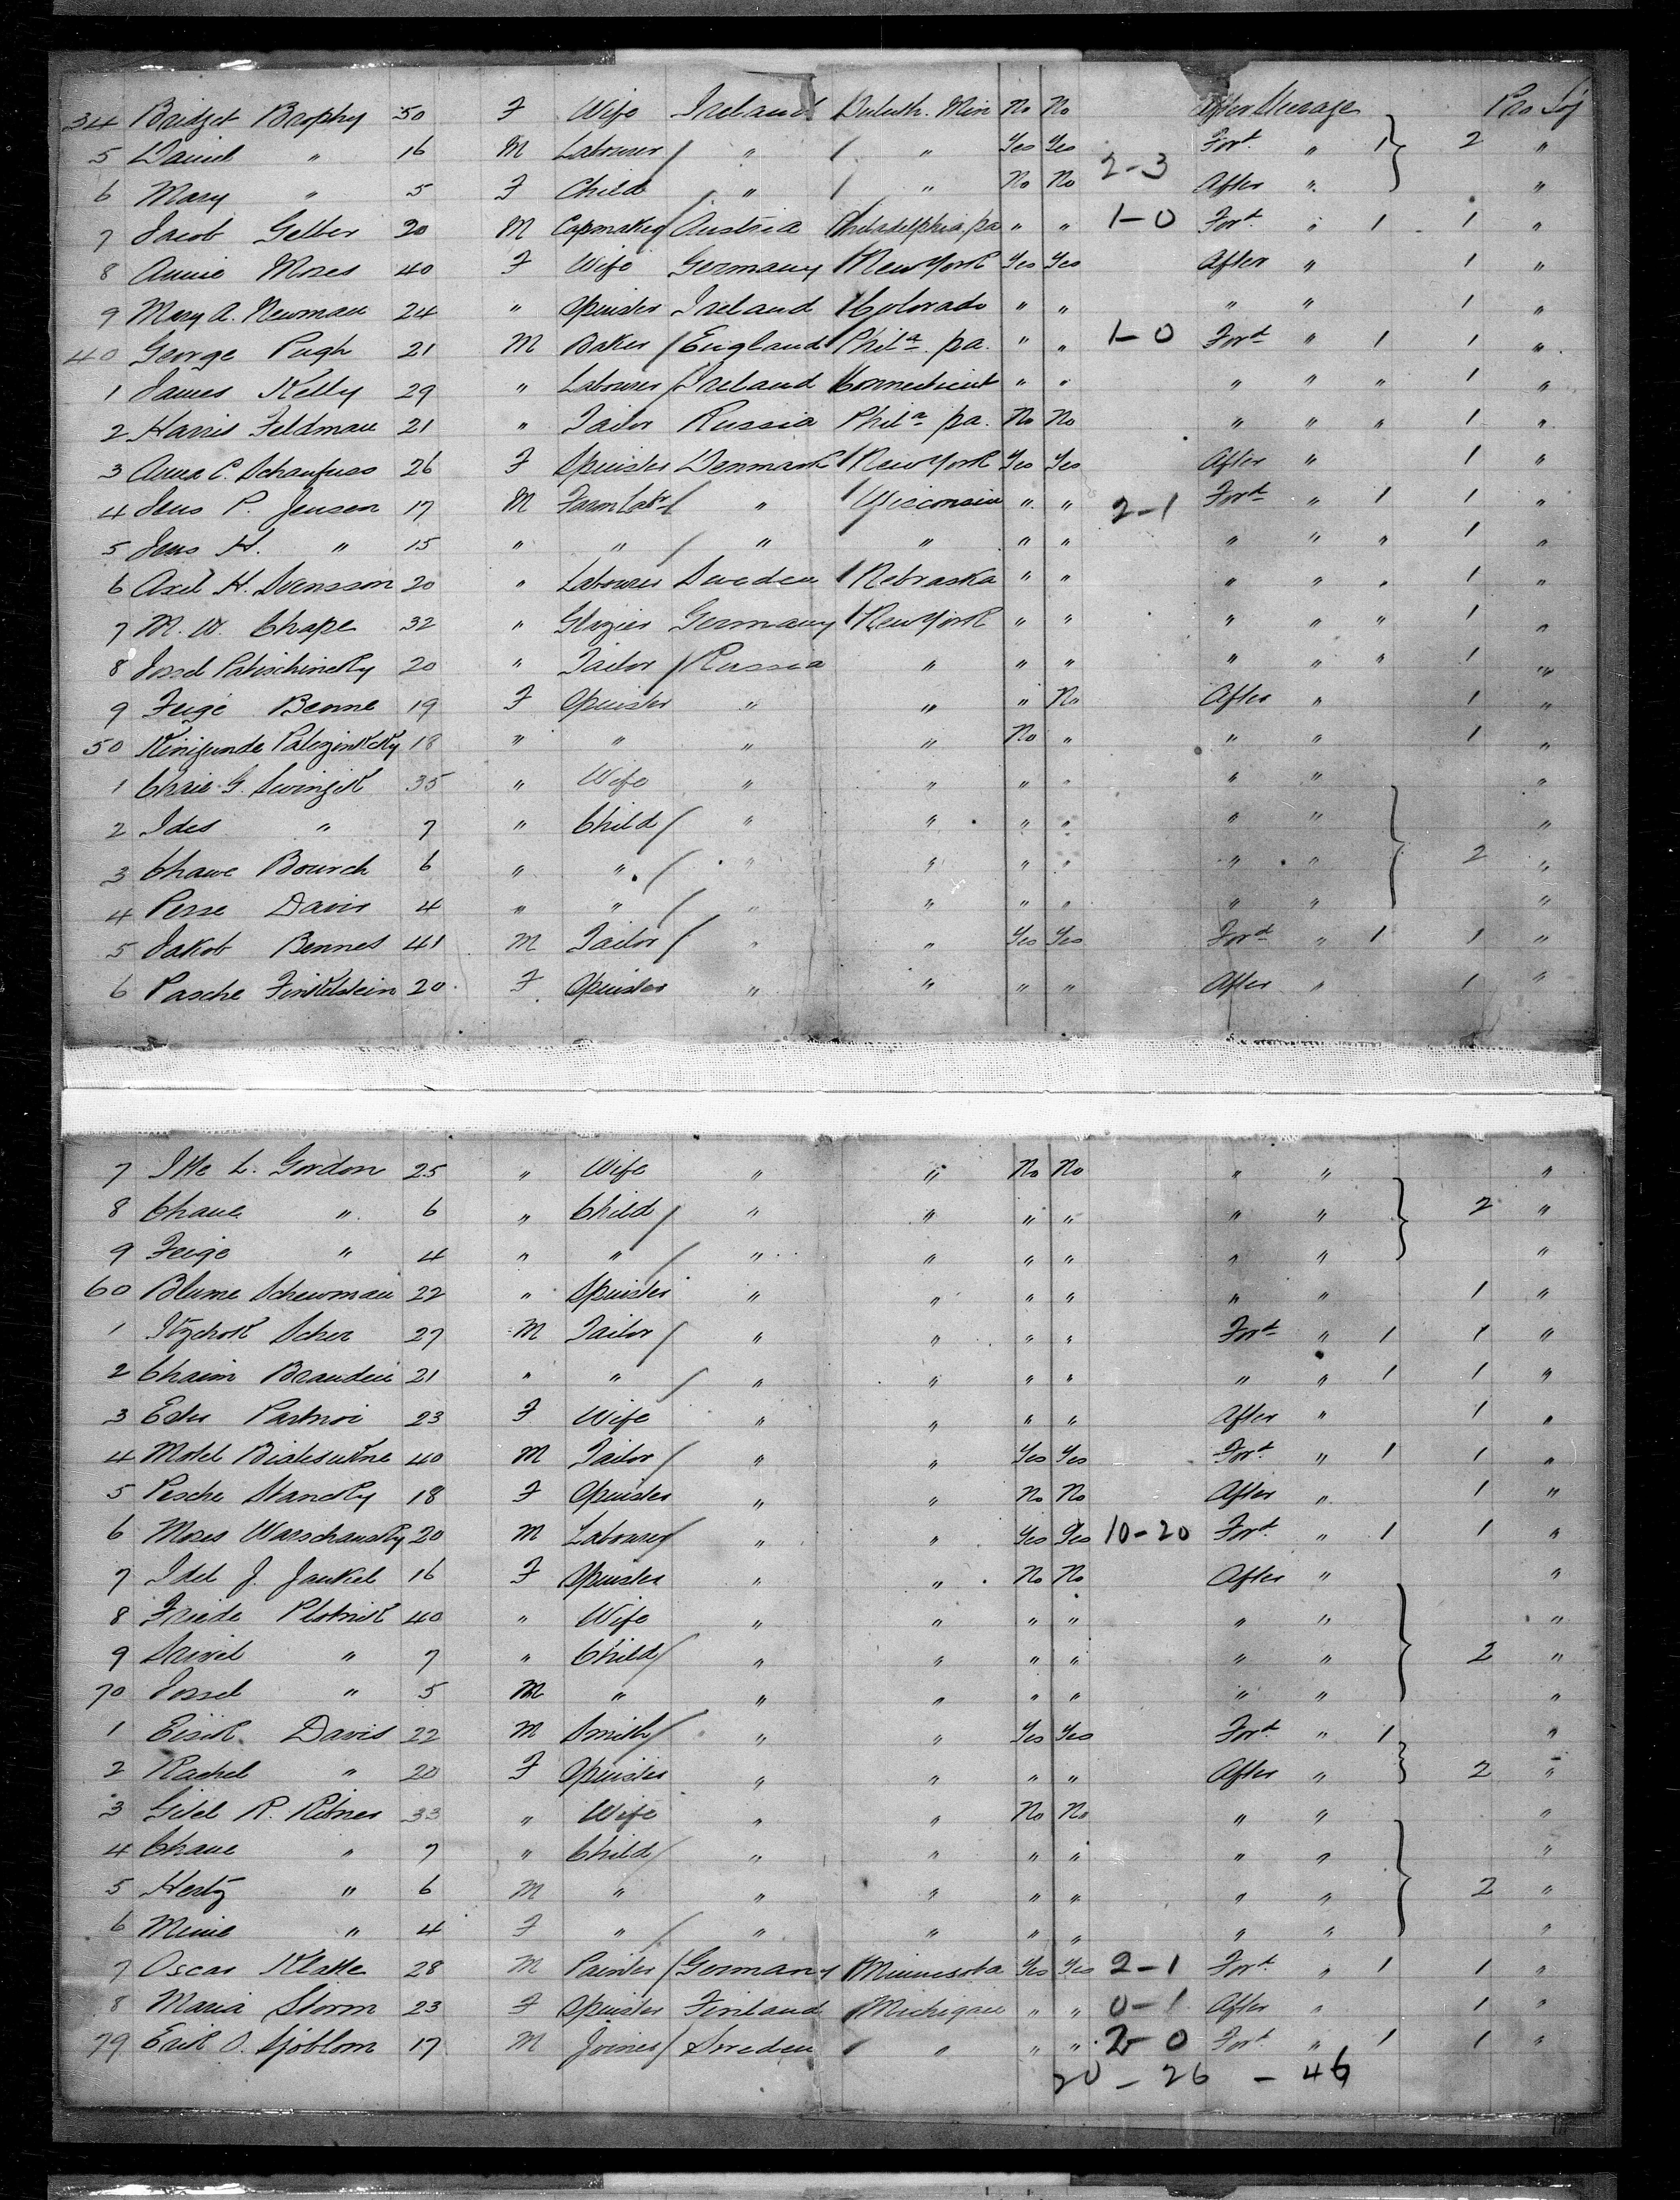 34 Bridget Brophy 50 F Wife Ireland Duluth. Min No No After Steerage Pro Soj
5 Daniel " 16 M Labourer / " / " Yes Yes Ford " 1 2 "
6 Mary " 5 F Child / " / " No No 2-3 After " "
7 Jacob Gelber 20 M Capmaker / Austria Philadelphia, pa " " 1-0 Ford " 1 1 "
8 Annie Moses 40 F Wife Germany / New York Yes Yes After " 1 "
9 Mary A. Newman 24 " Spinster Ireland / Colorado " " " " 1 "
40 George Pugh 21 M Baker / England Phila pa. " " 1-0 Ford " 1 1 "
1 James Kelly 29 " Labourer / Ireland Connecticut " " " " " 1 "
2 Harris Feldman 21 " Tailor Russia Phila pa. No No " " " 1 "
3 Anna C. Schaufuss 26 F Spinster Denmark / New York Yes Yes After " 1 "
4 Jens P. Jensen 17 M Farm Labr / " / Wisconsin " " 2-1 Ford " 1 1 "
5 Jens H. " 15 " " / " " " " " " " 1 "
6 Axel H. Svensson 20 " Labourer Sweden / Nebraska " " " " " 1 "
7 M. W. Chape 32 " Glazier Germany / New York " " " " " 1 "
8 Jossel 20 " Tailor / Russia " " " " " " 1 "
9 Feige Benne 19 F Spinster " " " No After " 1 "
50 Kinigunde 18 " " " " No " " " 1 "
1 Chaie G. Swingik 35 " Wife " " " " " " "
2 Ides " 7 " Child / " " " " " " "
3 Chawe Bourch 6 " " / " " " " " " 2 "
4 Pesse Davis 4 " " / " " " " " " "
5 Jakob Bennes 41 M Tailor / " " Yes Yes Ford " 1 1 "
6 Pasche Finkelstein 20 F Spinster " " " " After " 1 "
7 Itte L. Gordon 25 " Wife " " No No " " "
8 Chaue " 6 " Child / " " " " " " 2 "
9 Feige " 4 " " / " " " " " " "
60 Blume Schewman 22 " Spinster " " " " " " 1 "
1 Itzchok Scher 27 M Tailor / " " " " Ford " 1 1 "
2 Chaim Braudein 21 " " / " " " " " " 1 1 "
3 Ester Partnoi 23 F Wife " " " " After " 1 "
4 Motel 40 M Tailor / " " Yes Yes Ford " 1 1 "
5 Pesche Stancky 18 F Spinster " " No No After " 1 "
6 Moses Warschawsky 20 M Labourer / " " Yes Yes 10-20 Ford " 1 1 "
7 Idel J. Jankel 16 F Spinster " " No No After " "
8 Friede Plotnik 40 " Wife " " " " " " "
9 " 7 " Child / " " " " " " 2 "
70 Jossel " 5 M " " " " " " " "
1 Eisik Davis 22 M Smith / " " Yes Yes Ford " 1 "
2 Rachel " 20 F Spinster " " " " After " 2 "
3 Gitel R. Ritner 33 " Wife " " No No " " "
4 Chaue " 7 " Child / " " " " " " "
5 Hertz " 6 M " " " " " " " 2 "
6 Minie " 4 F " / " " " " " " "
7 Oscar Klatte 28 M Painter / Germany / Minnesota Yes Yes 2-1 Ford " 1 1 "
8 Maria Storm 23 F Spinster Finland / Michigan " " 0-1 After " 1 "
79 Erik O. Sjöblom 17 M Joiner / Sweden / " " " 2-0 Ford " 1 1 "
20 - 26 - 46